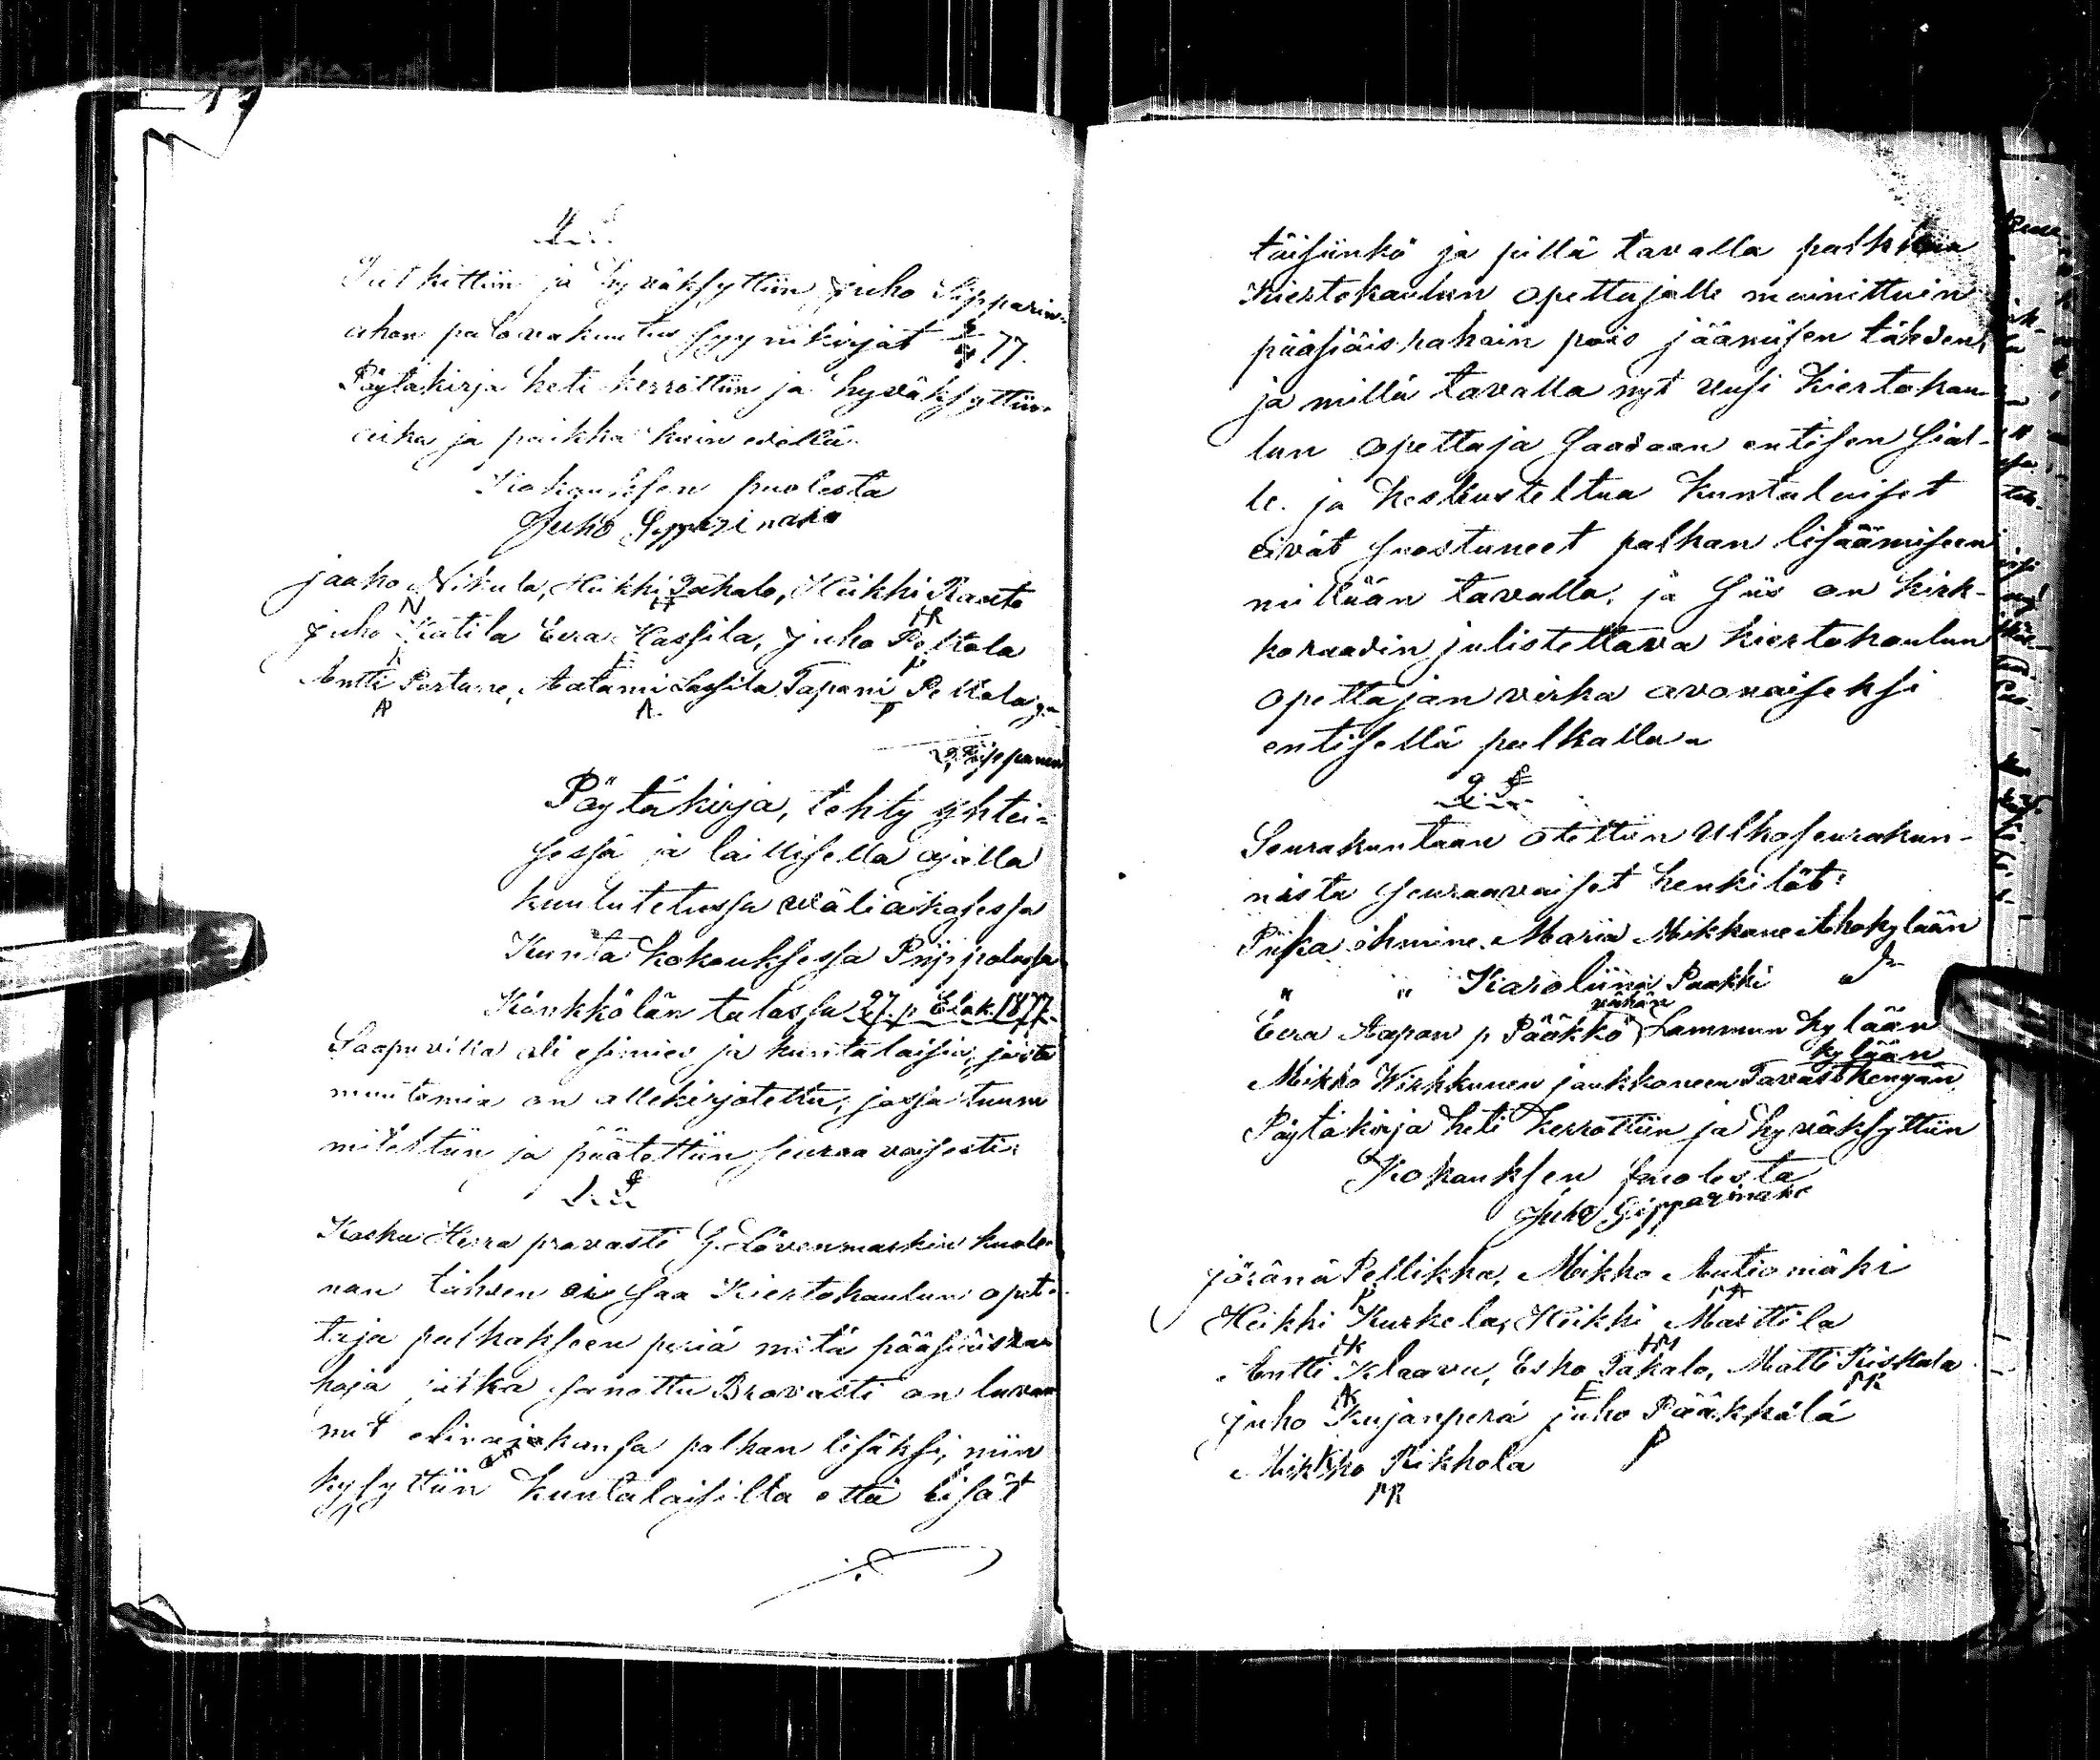 4. §
Tutkittiin ja hyväksyttiin Juho Sipparin-
ahon palovakuutus syynikirjat 77.
Pöytäkirja heti kerrottiin ja hyväksyttiin
aika ja paikka kuin edellä.
Kokouksen puolesta
Juho Sipparinaho
jaako Nikula, Heikki Takalo, Heikki Rauto
N
juho Katila Eera Hassila, juho Peltola
Antti Portune, Aatami Lassila Tapani Peltola
AP
Pöytäkirja, tehty yhtei-
sessä ja laillisella ajalla
kuulutetussa väliaikasessa
Kunta kokouksessa Piippolassa
Känkkölän talossa 27. p Elok. 1877.
Saapuvilla oli esimies ja kuntalaisia, joista
muutamia on allekirjotettu, jossa tuum
mitehtiin ja päätettiin seuraavaisesti:
1. §
Koska Herra provasti G. Lövenmarkin kuole-
man tähden ei saa Kiertokoulun opet-
taja palkakseen periä mitä pääsiäisra
hoja jotka sanottu Provasti on luvan
nut elinajakansa palkan lisäksi, niin
kysyttiin kuntalaisilta että lisät
täisiinkö ja sillä tavalla palkkaa
Kiertokoulun opettajalle mainittuin
pääsiäisrahain pois jäämisen tähden,
ja millä tavalla nyt uusi kiertokou-
lun opettaja saadaan entisen sial-
le. ja keskusteltua kuntalaiset
eivät suostuneet palkan lisäämiseen
millään tavalla, ja siis on kirk-
koraadin julistettava kiertokoulun
opettajan virka avonaiseksi
entisellä palkalla.
2. §
Seurakuntaan otettiin Ulkoseurakun-
nista seuraavaiset henkilöt:
Piika ihmine. Maria Mikkone Ahokylään
" " Karoliina Paakki
vähän
Eera Aapan p Pääkkö Lammun kylään
kylään
Mikko Wirkkunen joukkoneen Tavastkengän
Pöytäkirja heti kerrottiin ja hyväksyttiin
Kokouksen puolesta
Juho Sipparinaho
jöränä Pellikka, Mikko Autiomäki
P
Heikki Kurkela, Heikki Marttila
HK HM
Antti Klaavu, Esko Takalo, Matti Riskala
AK E
juho Kujanperä juho Pääkkölä
P
Mikko Rikkola
MR